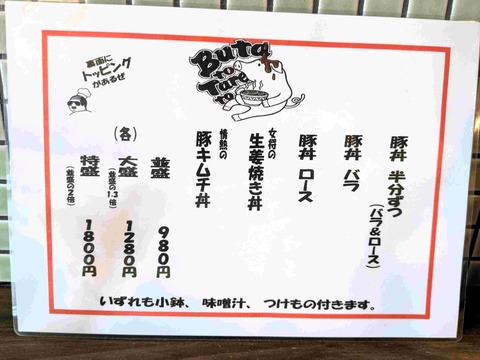 Buta
to
Tare
to
裏面に
トッピング
があるぜ
豚丼 半分ずつ
(バラ&ロース)
豚丼 バラ
豚丼 ロース
女将の
生姜焼き丼
情熱の
豚キムチ丼
(各)
並盛 980円
大盛 1280円
(並盛の1.3倍)
特盛 1800円
(並盛の2倍)
いずれも小鉢、味噌汁、つけもの付きます。